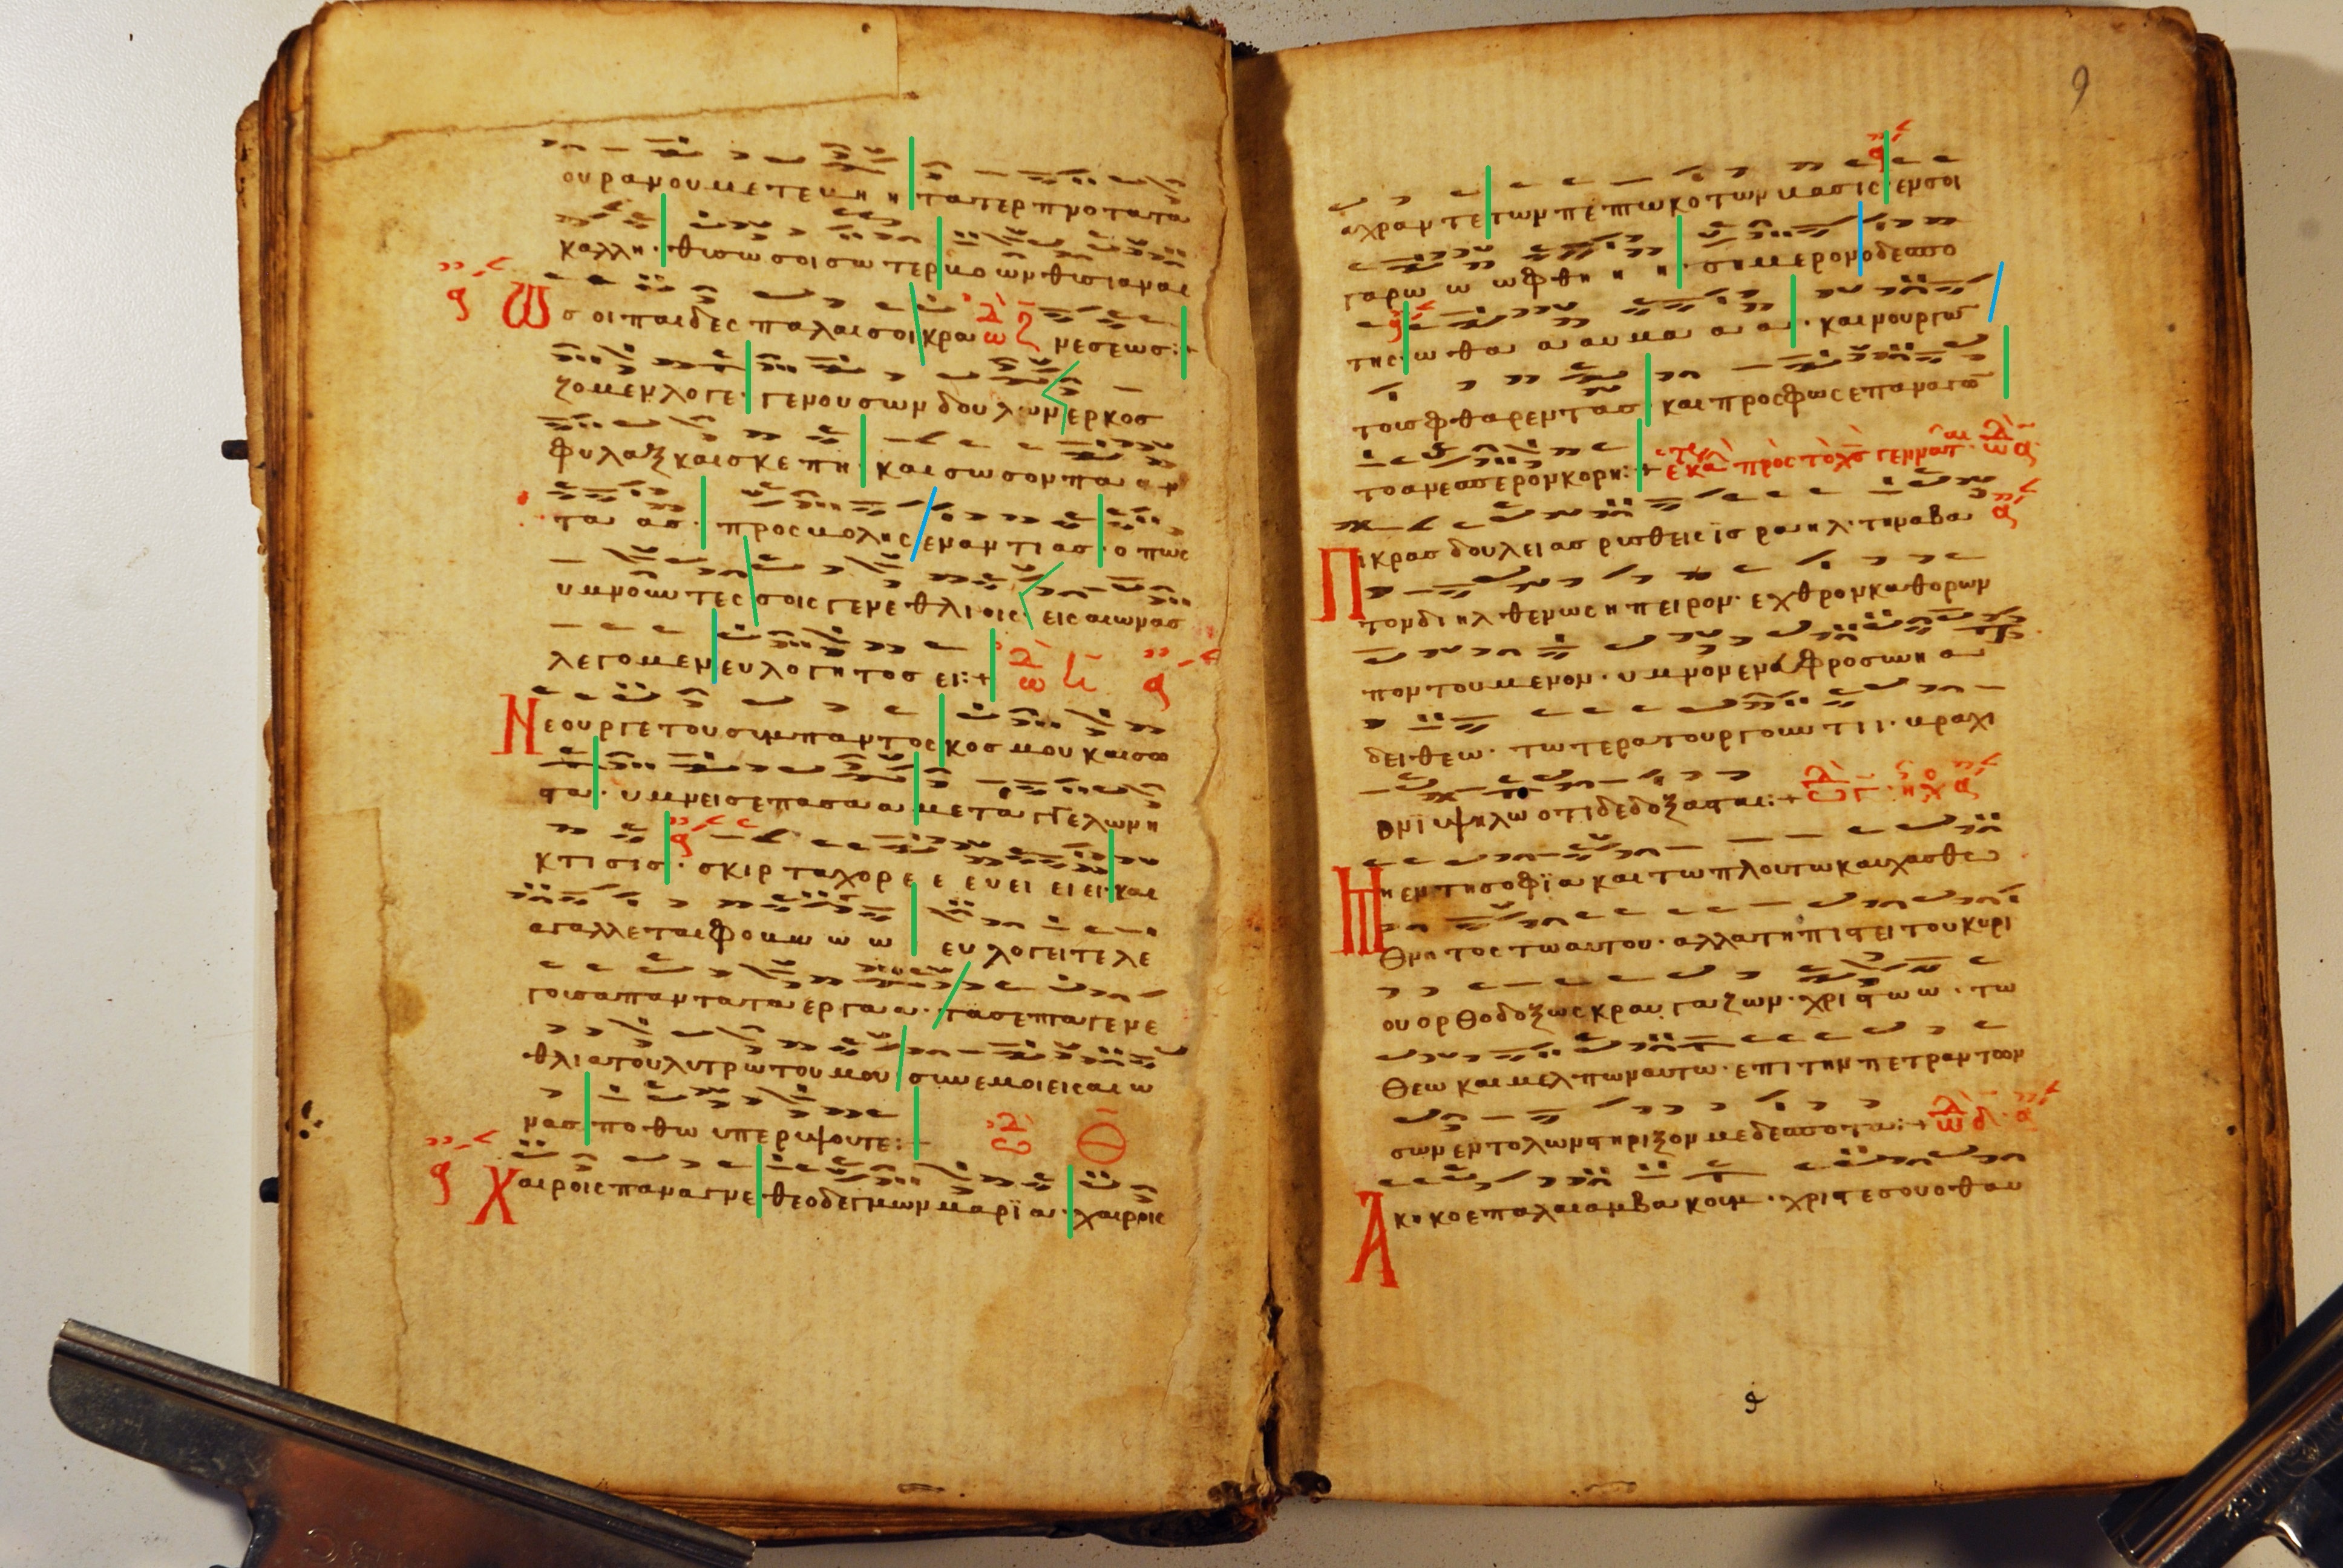 ουρανου μετευ η η τα τερπνοτατα
καλλη · θυσω σοι συ τερπνων θυσιαμα
Ωσ οι παιδες παλαι σοι κραι ωδ ζ νεσεως :+
ζομεν λογε · γενου σων δουλων ερκος
φυλαξ και σκεπη · και σωσον πα α ν
τα ας · προσ μολης εναντιας · οπως
υμνουντες σοις γενεθλιοις · εις αιωνας
λεγομεν ευλογητος ει :+ ωδ η
Νεουργε του συμπαντος κοσμου και σω
τα · υμνει σε πασα α μετα αγγελων η
κτισις · σκιρτα χορε ε ευει ει ει και
αγαλλεται φοιν ω ω ω ευλογειτε λε
γουσα παντα τα εργα α · τασ επ αγενε
θλια του λυτρωτου μου συν εμοι εις αιω
νας ποθω υπερυψουτε :+ ωδ θ
Χαιροις παναγνε θεοδεγμων μαρια α · χαιροις
αχραντε των πεπτωκοτων η ασις εν σοι
γαρ ω ω ωφθη η η · σημερον ο δεσπο
της ω θα α αυμα α α · και μουργω
τους φθαρεντας · και προς φως επαναγω
το ανεσπερον κορη :+ ετε κα προς το χς γενναται · ωδ α
Πικρας δουλειας ρυσθεις ισραηλ · την αβα
τον διηλθεν ως ηπειρον · εχθρον καθορων
ποντουμενον · υμνον εν ευφροσυνη α
δει θεω · τω τερατουργουντι ι · βραχι
ονι υψηλω οτι δεδοξασται :+ ωδ γ · ηχο α
Μη εν τη σοφια και τω πλουτω καυχασθω
θνητος τω αυτου · αλλα τη πιστει του κυρι
ου ορθοδοξως κραυγαζων · χριστω ω · τω
θεω και μελπων αυτω · επι την πετραν των
σων εντολων στηριξον με δεσποτα :+ ωδ δ · α
Ακηκοε παλαι αμβακουμ · χριστε σου το θαυ
9